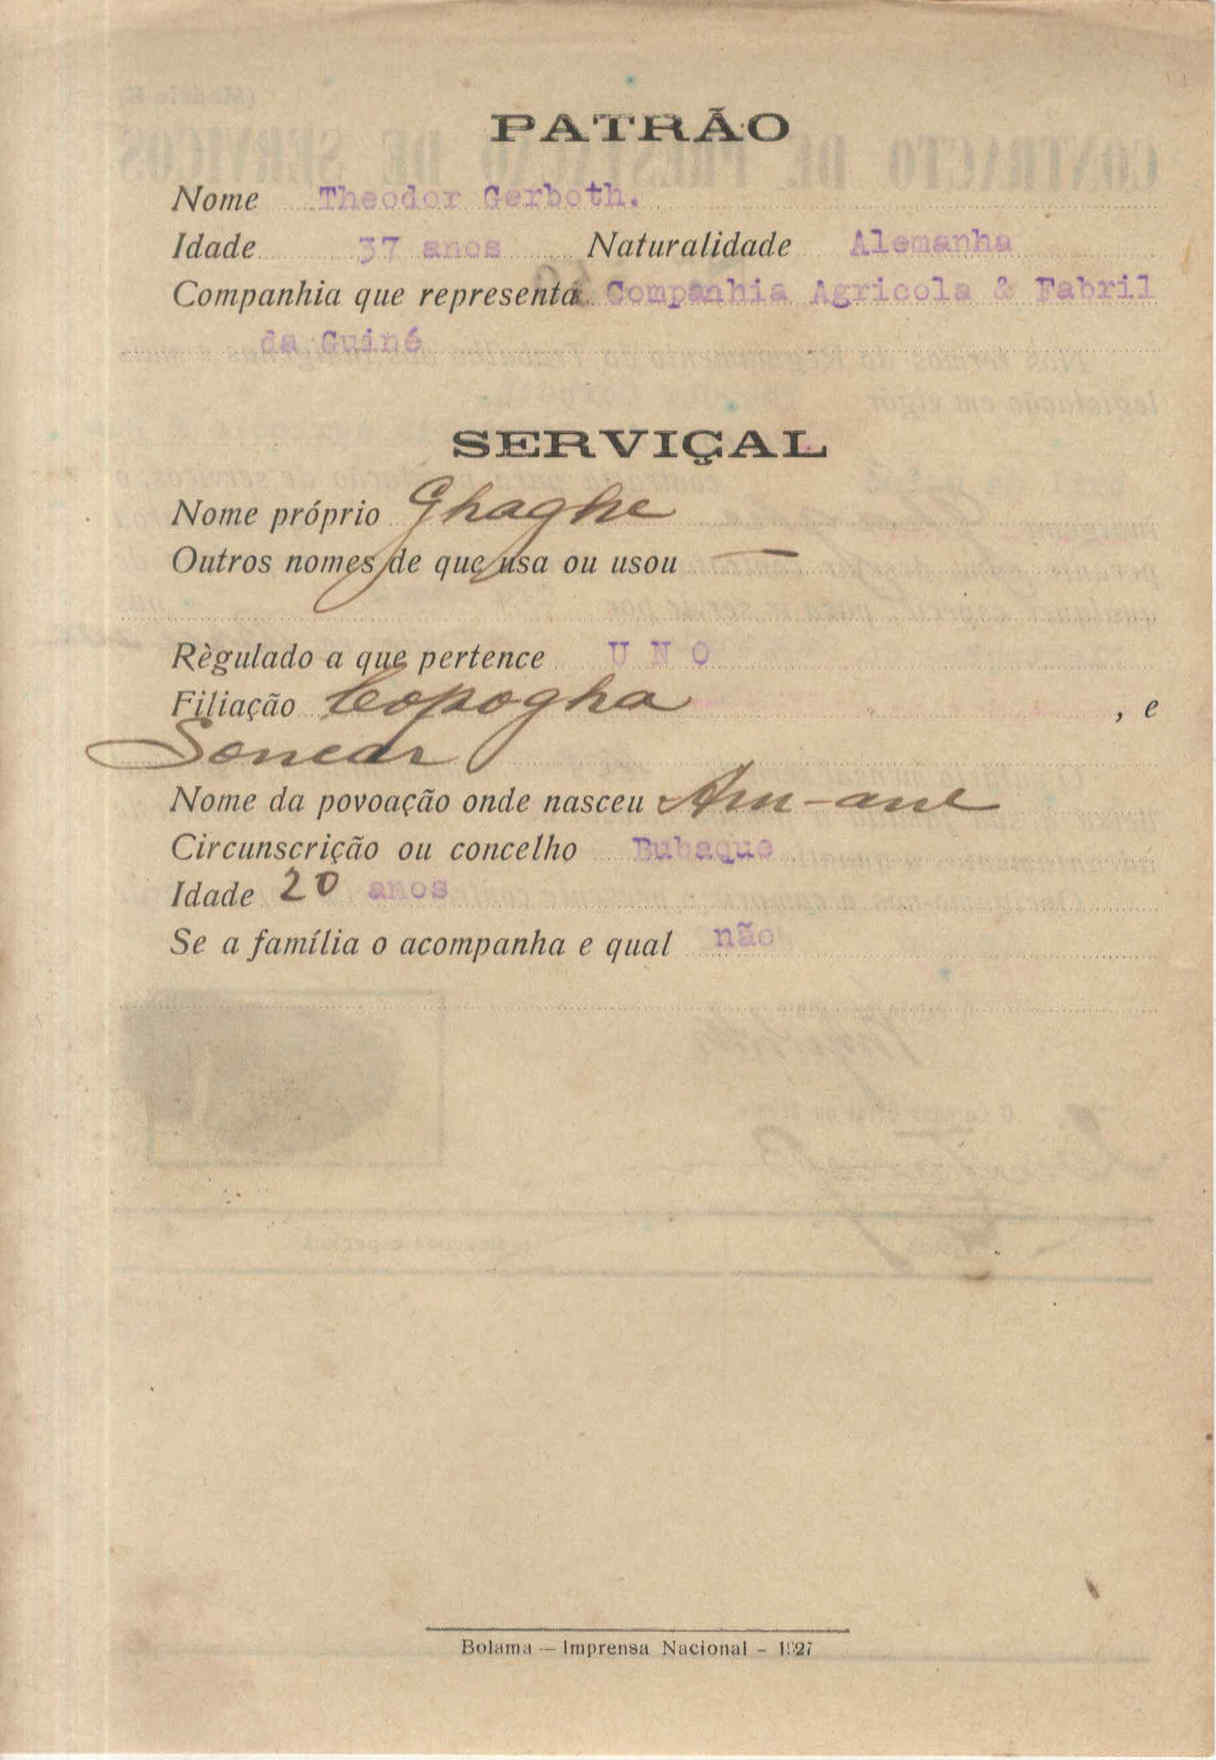 PATRÃO
Nome Theodor Gerboth.
Idade 37 anos Naturalidade Alemanha
Companhia que representa Companhia Agricola & Fabril
da Guiné
SERVIÇAL
Nome próprio Ghaghe
Outros nomes de que usa ou usou —
Règulado a que pertence U N O
Filiação Copogha , e
Soncar
Nome da povoação onde nasceu An-ane
Circunscrição ou concelho Bubaque
Idade 20 anos
Se a família o acompanha e qual não
Bolama — Imprensa Nacional - 1927